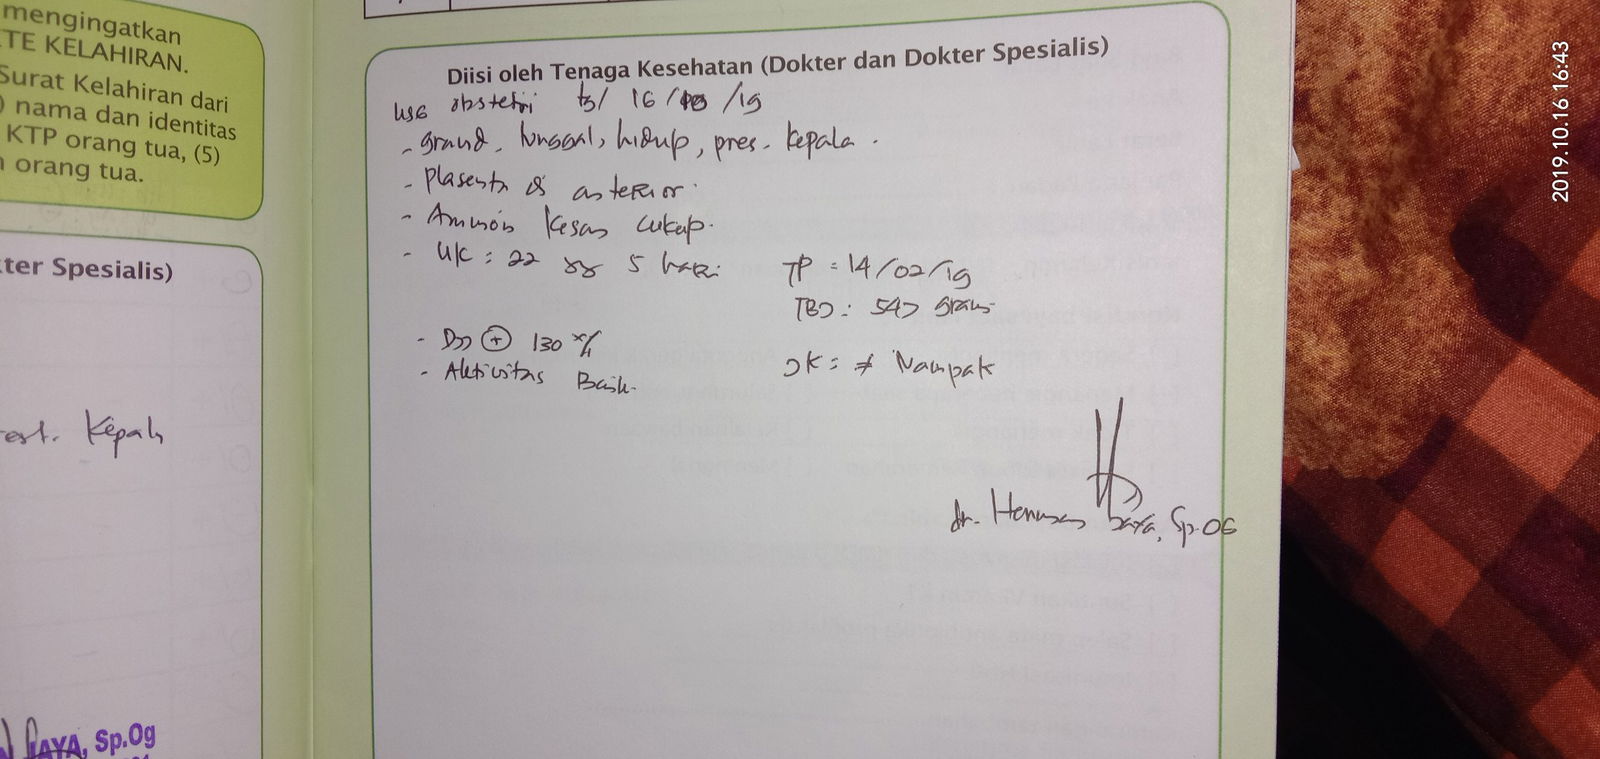 mengingatkan
TE KELAHIRAN.
Surat Kelahiran dari
) nama dan identitas
KTP orang tua, (5)
orang tua.
ter Spesialis)
est. Kepala
JAYA, Sp.Og
Diisi oleh Tenaga Kesehatan (Dokter dan Dokter Spesialis)
USG obstetri 16/10/19
- gravid, tunggal, hidup, pres. kepala.
- Plasenta di anterior.
- Amnion kesan cukup.
- UK : 22 5 hari
TP = 14/02/19
TBJ : 547 gram
- DJJ + 130 x/
- Aktivitas Baik.
JK : ≠ Nampak
dr. Jaya, Sp.OG
2019.10.16 16:43